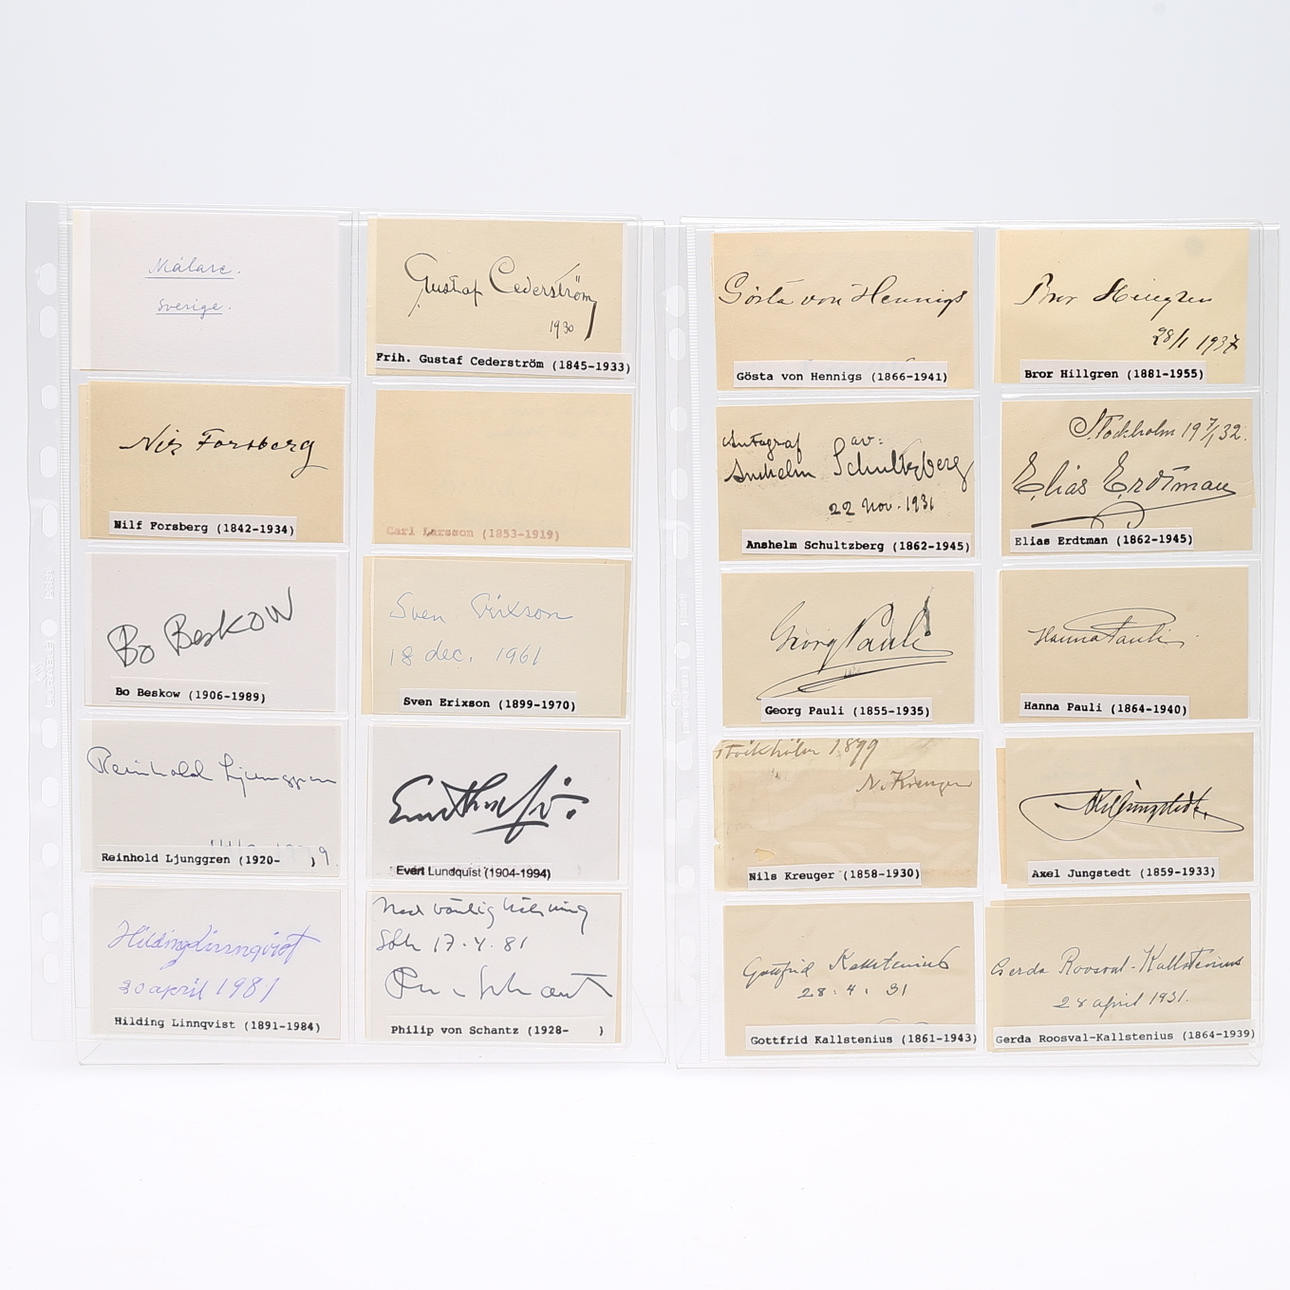 Målare.
Sverige.
Gustaf Cederström
1930
Frih. Gustaf Cederström (1845-1933)
Nils Forsberg
Nilf Forsberg (1842-1934)
Carl Larsson (1853-1919)
Bo Beskow
Bo Beskow (1906-1989)
Sven Erixson
18 dec. 1961
Sven Erixson (1899-1970)
Reinhold Ljunggren
Reinhold Ljunggren (1920- )
Evert Lundquist (1904-1994)
Hilding Linnqvist
30 april 1981
Hilding Linnqvist (1891-1984)
Med vänlig hälsning
Sth 17.4.81
Philip von Schantz (1928- )
Gösta von Hennigs
Gösta von Hennigs (1866-1941)
Bror Hillgren
28/1 1937
Bror Hillgren (1881-1955)
Autograf av:
Anshelm Schultzberg
22 Nov. 1931
Anshelm Schultzberg (1862-1945)
Stockholm 19 7/1 32.
Elias Erdtman
Elias Erdtman (1862-1945)
Georg Pauli
Georg Pauli (1855-1935)
Hanna Pauli
Hanna Pauli (1864-1940)
Stockholm 1899
N. Kreuger
Nils Kreuger (1858-1930)
Axel Jungstedt.
Axel Jungstedt (1859-1933)
Gottfrid Kallstenius
28.4.31
Gottfrid Kallstenius (1861-1943)
Gerda Roosval-Kallstenius
28 april 1931.
Gerda Roosval-Kallstenius (1864-1939)